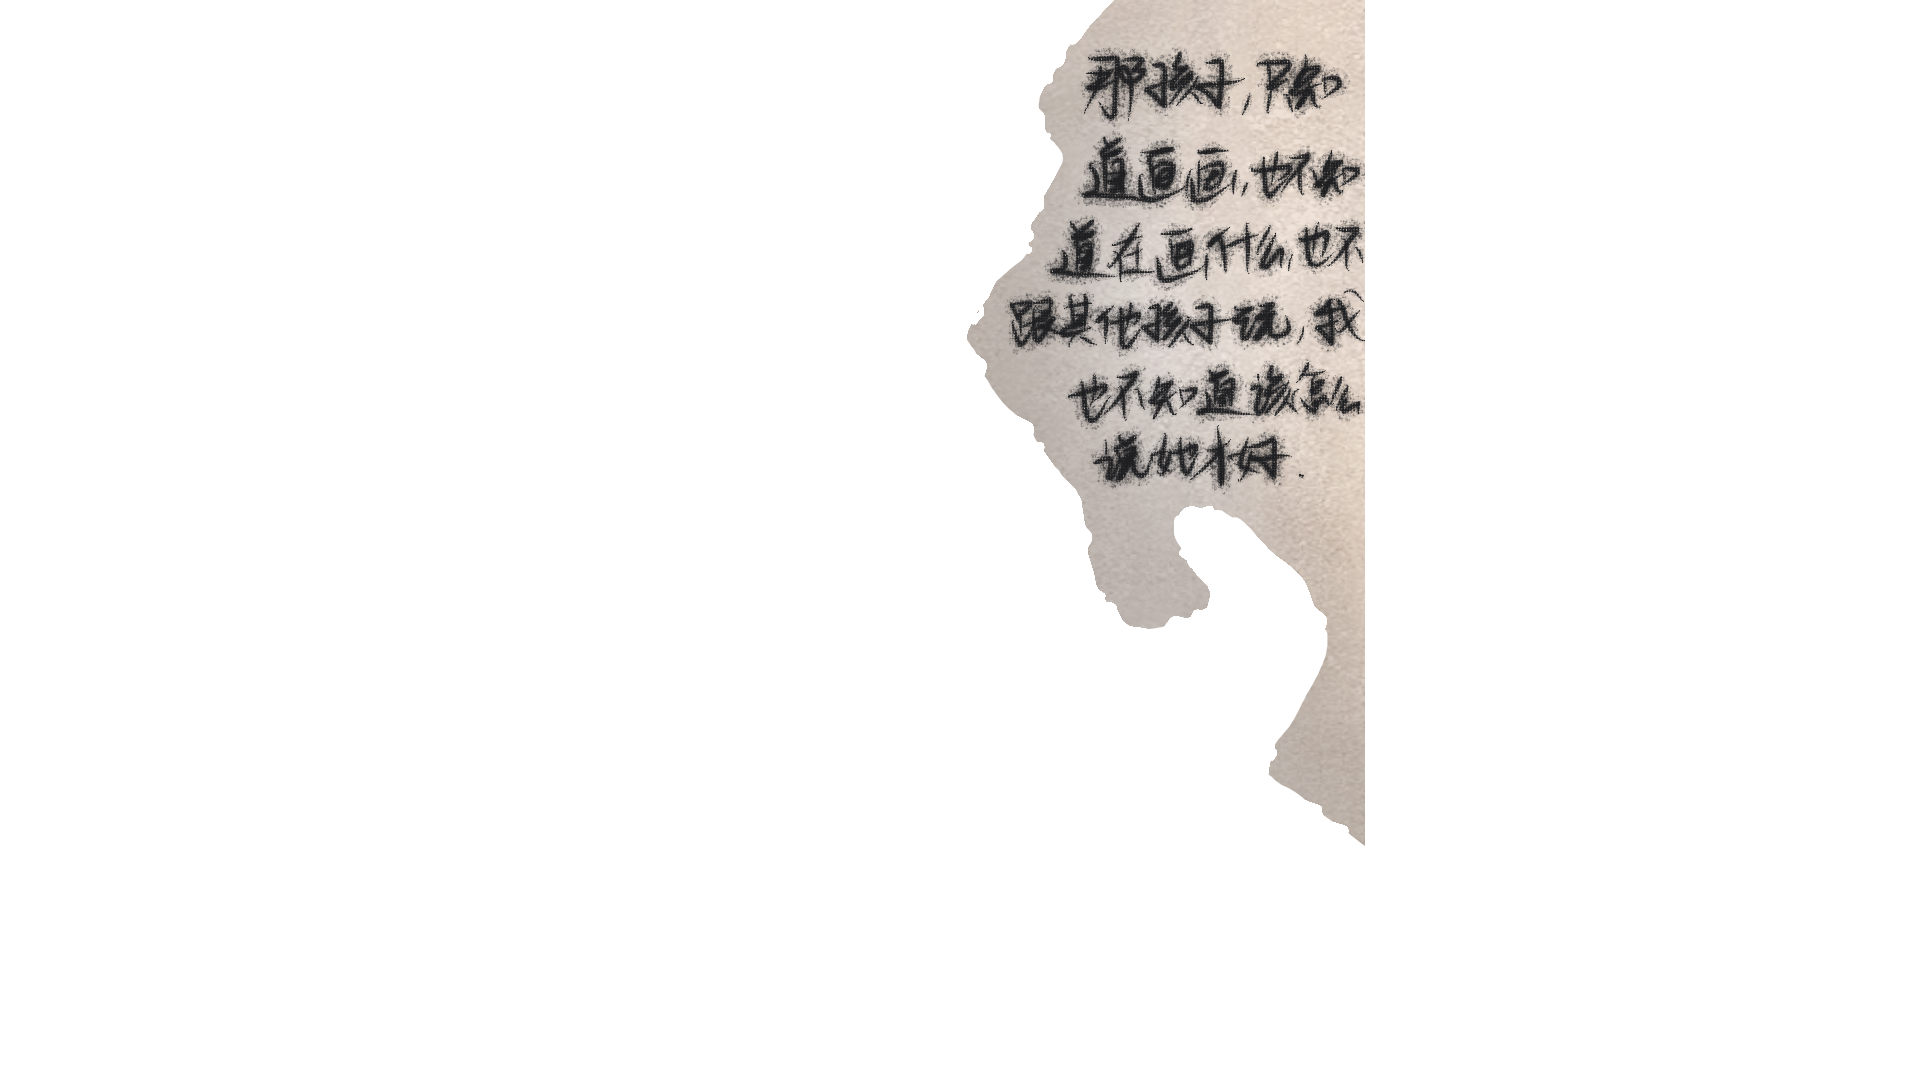 那孩子，只知
道画画，也不知
道在画什么，也不
跟其他孩子玩，我
也不知道该怎么
说她才好.